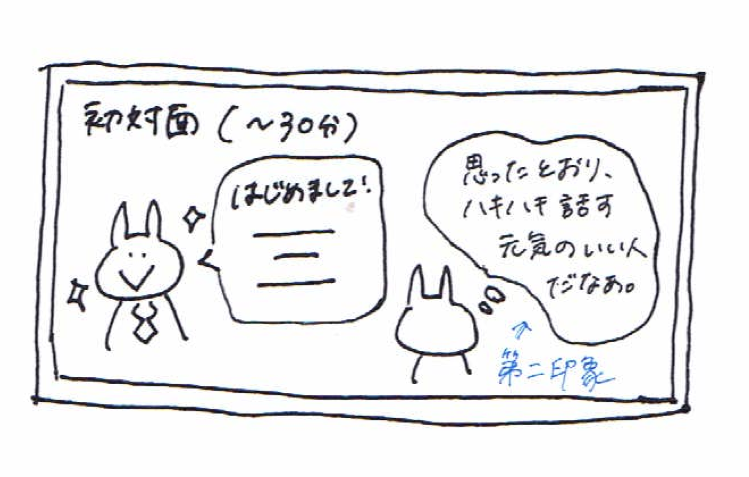 初対面(〜30分)
はじめまして!
思ったとおり、
ハキハキ話す
元気のいい人
だなぁ。
第二印象